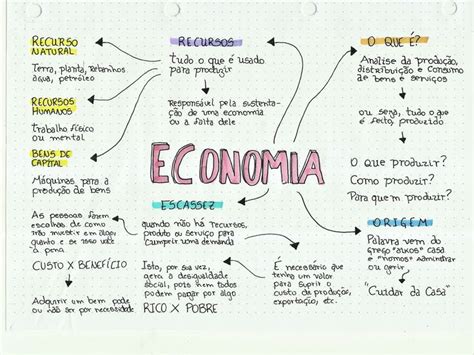 RECURSO
NATURAL
Terra, planta, rebanhos
água, petróleo
RECURSOS
HUMANOS
Trabalho físico
ou mental
BENS DE
CAPITAL
Máquinas para a
produção de bens
RECURSOS
tudo o que é usado
para produzir
Responsável pela sustenta-
ção de uma economia
ou a falta dele
O QUE É?
Análise da produção,
distribuição e consumo
de bens e serviços
ou seja, tudo o que
é feito, produzido
O que produzir?
Como produzir?
Para quem produzir?
ECONOMIA
ESCASSEZ
quando não há recursos,
produto ou serviço para
cumprir uma demanda
Isto, por sua vez,
gera a desigualdade
social, pois nem todos
podem pagar por algo
RICO X POBRE
É necessário que
tenha um valor
para suprir o
custo de produção,
exportação, etc.
As pessoas fazem
escolhas de como
irão investir em algo,
quando e se isso vale
a pena
CUSTO X BENEFÍCIO
Adquirir um bem pode
ou não ser por necessidade
ORIGEM
Palavra vem do
grego "oikos" casa
e "nomos" administrar
ou gerir
"Cuidar da Casa"